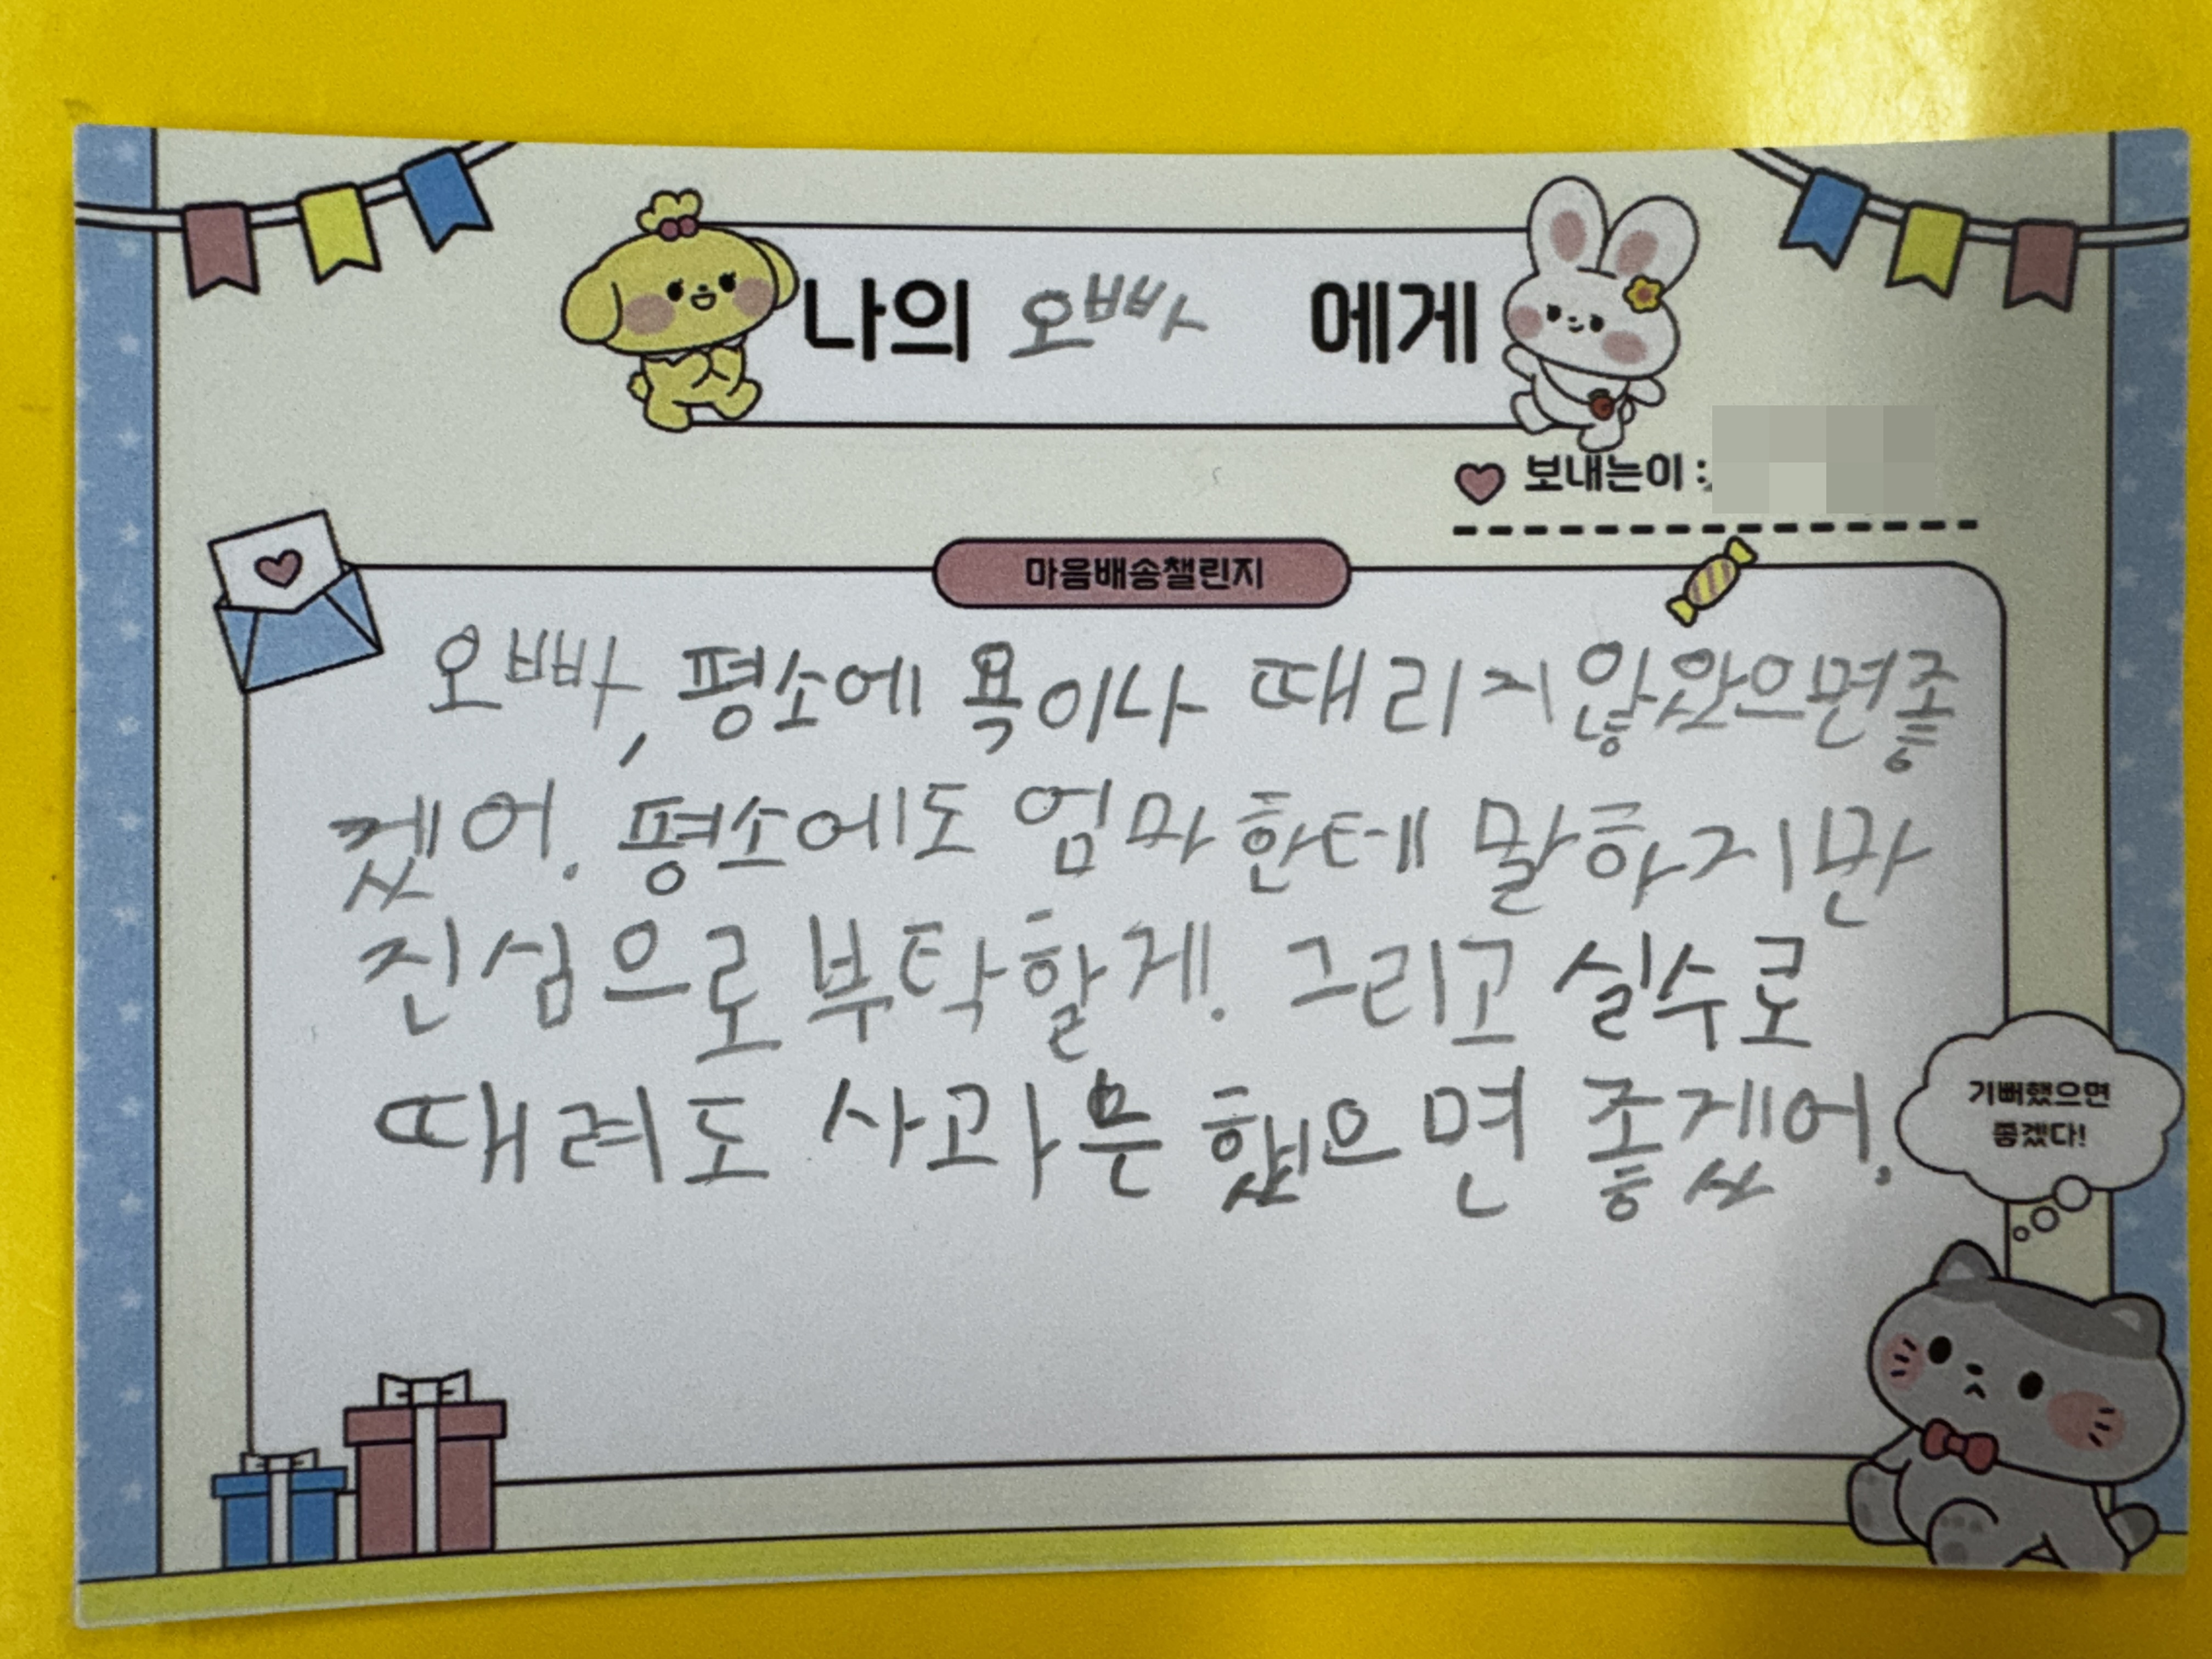 나의 오빠 에게
보내는이 :
마음배송챌린지
오빠, 평소에 욕이나 때리지 않았으면 좋
겠어. 평소에도 엄마한테 말하지만
진심으로 부탁할게. 그리고 실수로
때려도 사과는 했으면 좋겠어.
기뻐했으면
좋겠다!